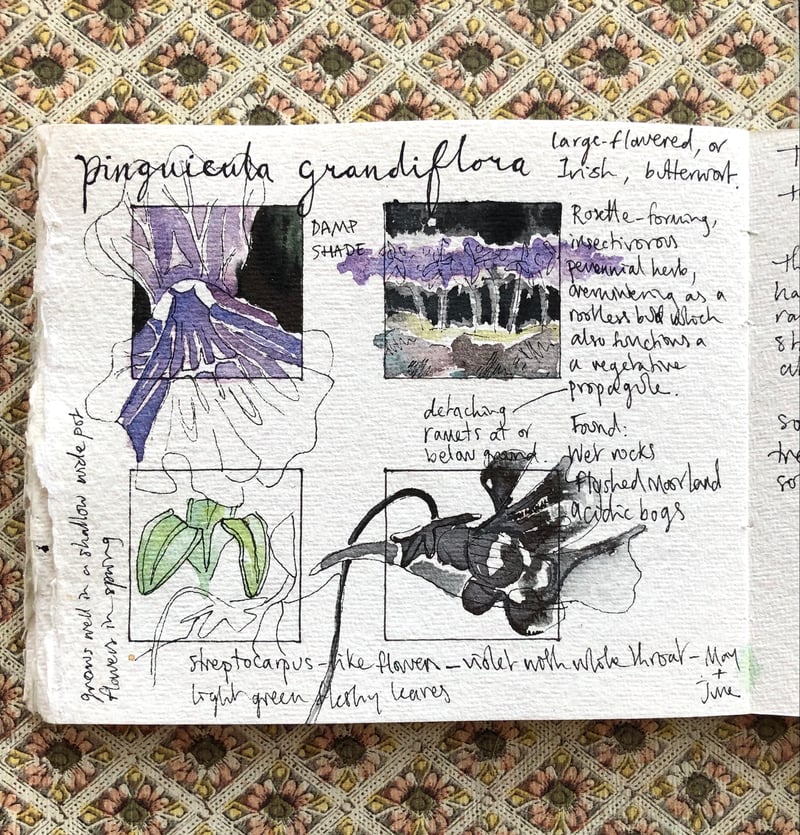 pinguicula grandiflora
large-flowered, or
Irish, butterwort.
DAMP
SHADE
Rosette-forming,
insectivorous
perennial herb,
overwintering as a
rootless bud which
also functions a
a vegetative
propagule.
detaching
ramets at or
below ground.
Found:
Wet rocks
Flushed Moorland
acidic bogs
grows well in a shallow wide pot
flowers in spring
streptocarpus-like flower - violet with white throat - May
+
June
light green fleshy leaves